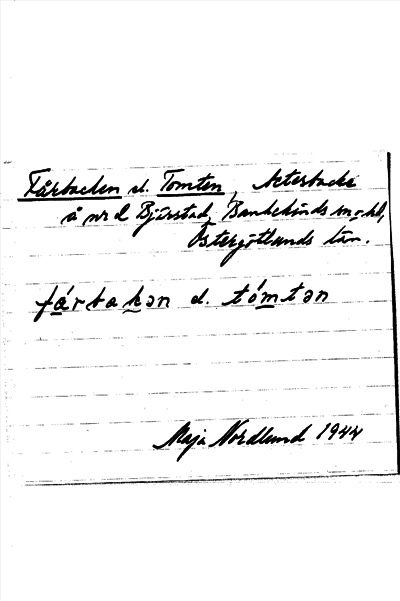 Fårbacken el. Tomten, Aterbacke
å nr 2 Bjärstad, Bankekinds sn o. hd,
Östergötlands län.
fárbakən el. tómtən
Maja Nordlund 1944